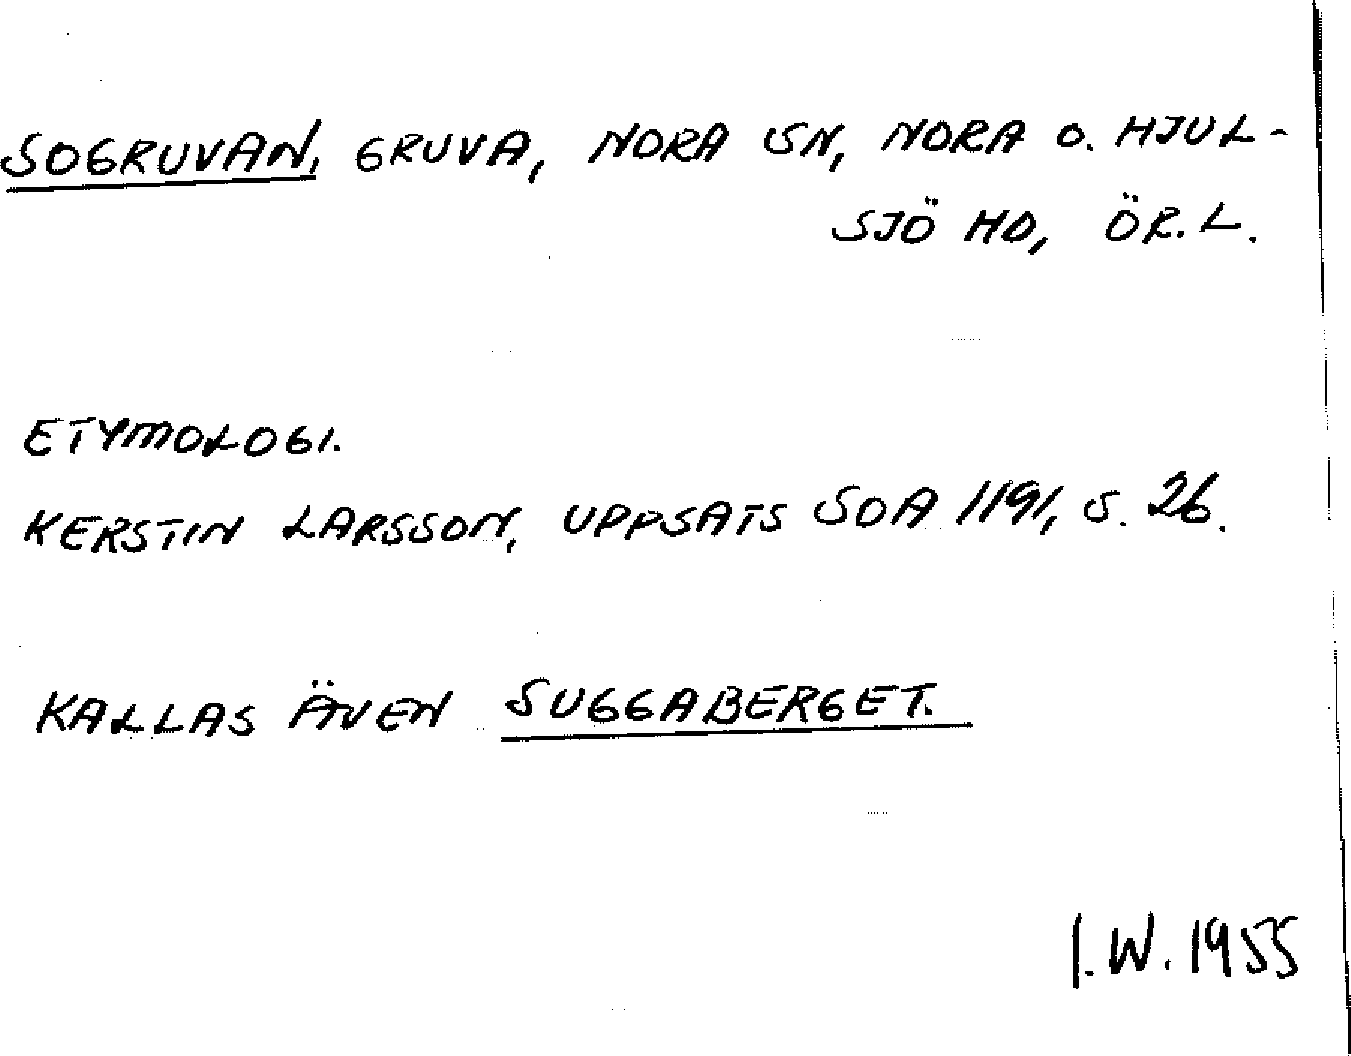 SOGRUVAN, GRUVA, NORA SN, NORA O. HJUL-
SJÖ HD, ÖR. L.
ETYMOLOGI.
KERSTIN LARSSON, UPPSATS SOA 1191, S. 26.
KALLAS ÄVEN SUGGABERGET.
I. W. 1955